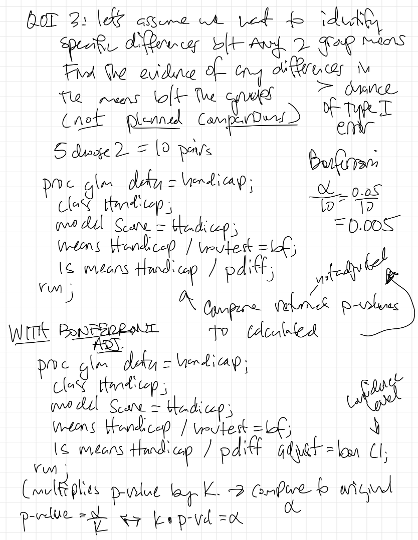 QOI 3: let's assume we want to identify
specific differences b/t Any 2 group means
Find the evidence of any differences in
the means b/t the groups
(not planned comparisons)
> chance
of type I
error
5 choose 2 = 10 pairs
Bonferroni
α/10 = 0.05/10
= 0.005
proc glm data = handicap;
class Handicap;
model Score = Handicap;
means Handicap / hovtest = bf;
ls means Handicap / pdiff;
run;
not adjusted
compare returned p-values
to calculated
WITH BONFERRONI
ADJ.
proc glm data = handicap;
class Handicap;
model Score = Handicap;
means Handicap / hovtest = bf;
ls means Handicap / pdiff adjust = bon Cl;
run;
confidence
level
(multiplies p-value by K. → compare to original
α
p-value = α/K ↔ K • p-val = α